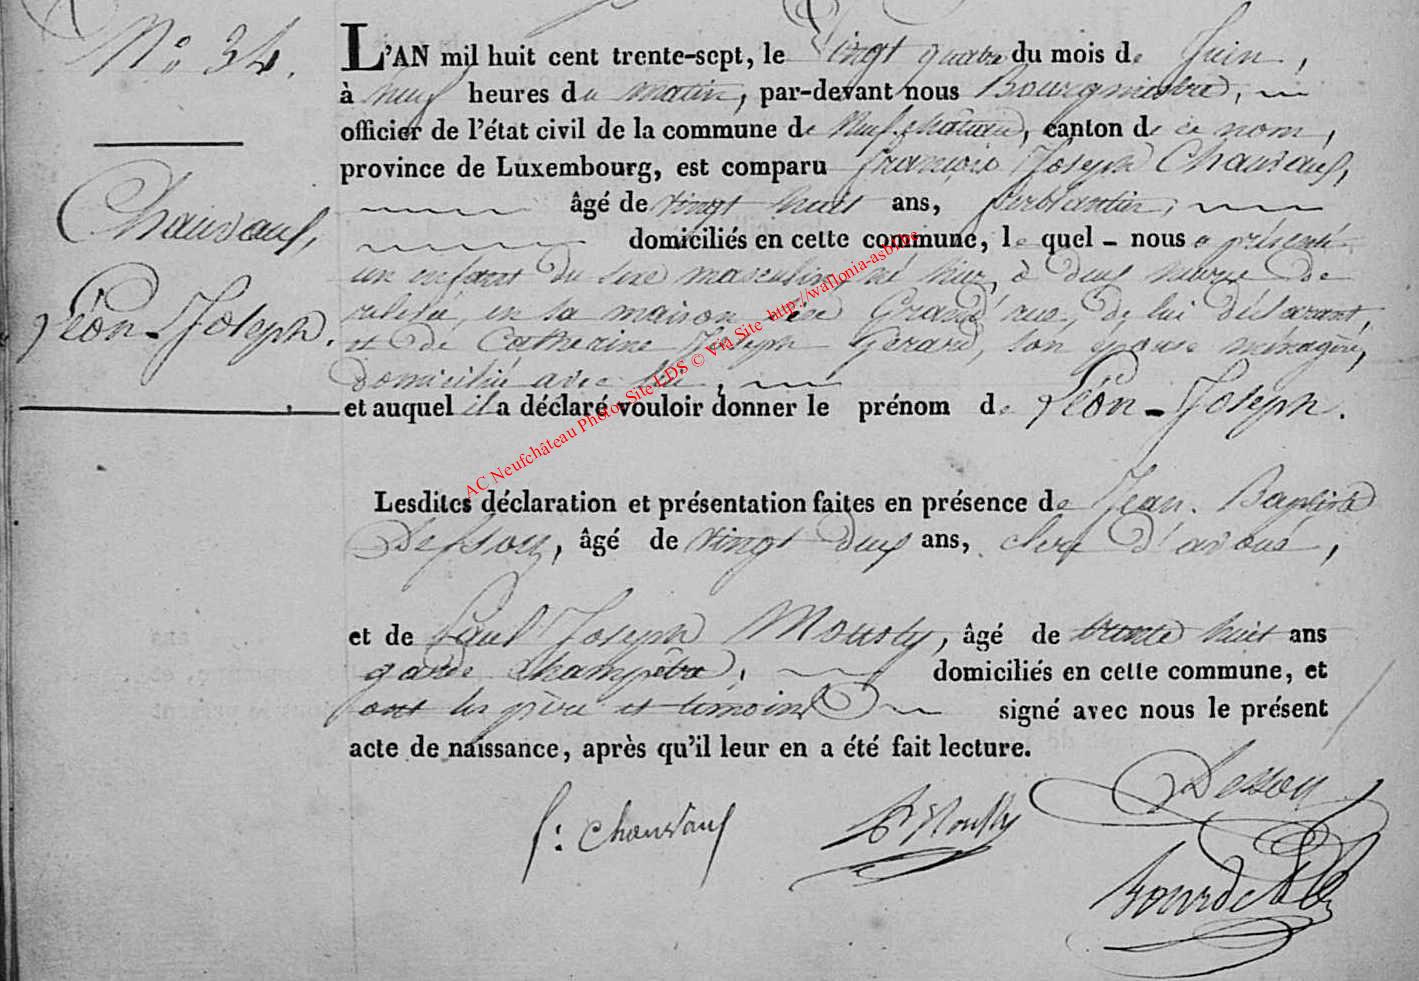 N° 34.
L'AN mil huit cent trente-sept, le Vingt quatre du mois de Juin,
à neuf heures du matin, par-devant nous Bourgmestre,
officier de l'état civil de la commune de Neufchâteau, canton de ce nom,
province de Luxembourg, est comparu François Joseph Chauvaux,
âgé de vingt huit ans, ferblantier,
domiciliés en cette commune, le quel - nous a présenté
un enfant du sexe masculin, né hier, à deux heures de
relevée, en sa maison Grand'rue, de lui déclarant,
et de Catherine Joseph Gérard, son épouse ménagère,
domiciliée avec lui,
et auquel il a déclaré vouloir donner le prénom de Léon-Joseph.
Chauvaux,
Léon-Joseph.
Lesdites déclaration et présentation faites en présence de Jean-Baptiste
Dessoy, âgé de vingt deux ans, clerc d'avoué,
et de Paul Joseph Mousty, âgé de trente huit ans
garde champêtre, domiciliés en cette commune, et
ont les père et témoins signé avec nous le présent
acte de naissance, après qu'il leur en a été fait lecture.
f: chauvaux
Mousty
Dessoy
AC Neufchâteau Photos Site LDS © Via Site http://wallonia-asbl.be